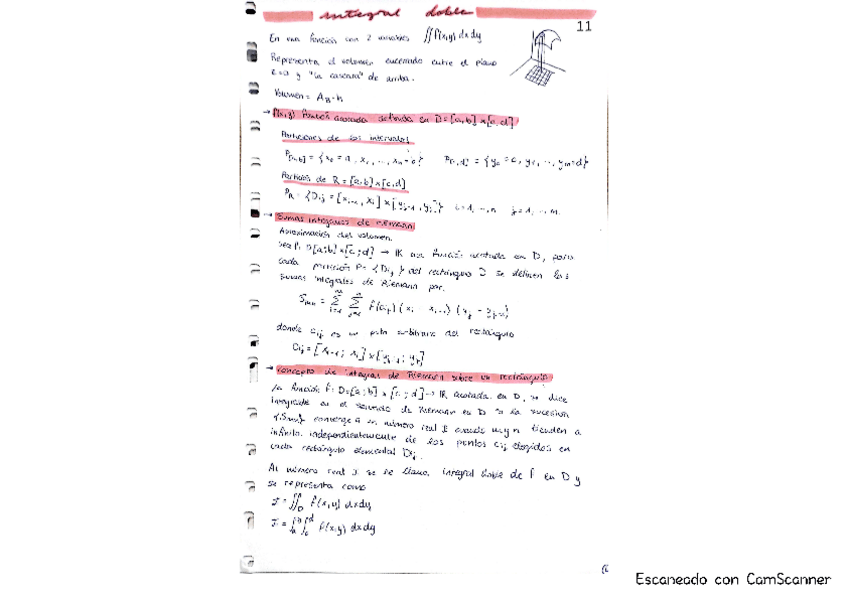 integral doble
11
En una función con 2 variables ∬f(x,y) dx dy
Representa el volumen encerrado entre el plano
z=0 y "la cascara" de arriba.
Volumen = A_B·h
→ f(x,y) función acotada definida en D=[a,b]x[c,d]
Particiones de los intervalos
P[a,b] = {x₀ = a, x₁, ..., xₙ = b} P[c,d] = {y₀ = c, y₁, ..., yₘ = d}
Partición de R = [a,b]x[c,d]
P_R = {Dij = [xi-1, xi] x [yj-1, yj]} i=1, ..., n j=1, ..., m
→ Sumas integrales de Riemann
Aproximación del volumen.
Sea f: D[a;b]x[c;d] → IR una función acotada en D, para
cada partición P = {Dij} del rectángulo D se definen las
sumas integrales de Riemann por:
donde cij es un punto arbitrario del rectángulo
Cij = [xi-1; xi] x [yj-1; yj]
→ concepto de integral de Riemann sobre un rectángulo
La función f: D=[a;b]x[c;d] → IR acotada en D, se dice
integrable en el sentido de Riemann en D si la sucesión
{Smn} converge a un número real I cuando m y n tienden a
infinito, independientemente de los puntos cij elegidos en
cada rectángulo elemental Dij.
Al número real I se le llama integral doble de f en D y
se representa como
I = ∬_D f(x,y) dx dy
I = ∫_a^b ∫_c^d f(x,y) dx dy
Escaneado con CamScanner